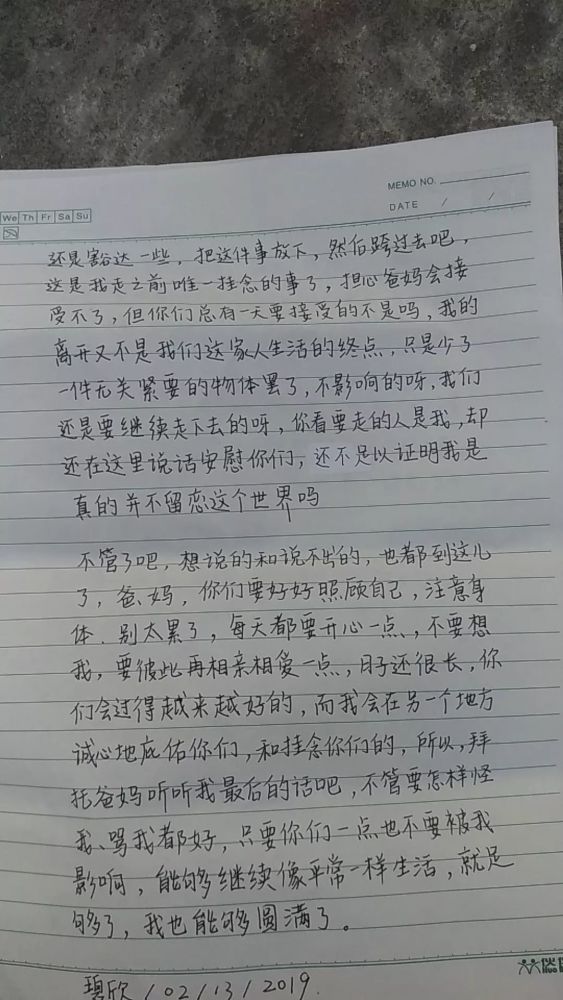 MEMO NO.
We Th Fr Sa Su
DATE / /
还是豁达一些，把这件事放下，然后跨过去吧，
这是我走之前唯一挂念的事了，担心爸妈会接
受不了，但你们总有一天要接受的不是吗，我的
离开又不是我们这家人生活的终点，只是少了
一件无关紧要的物体罢了，不影响的呀，我们
还是要继续走下去的呀，你看要走的人是我，却
还在这里说话安慰你们，还不足以证明我是
真的并不留恋这个世界吗
不管了吧，想说的和说不出的，也都到这儿
了，爸、妈，你们要好好照顾自己，注意身
体．别太累了，每天都要开心一点，不要想
我，要彼此再相亲相爱一点，日子还很长，你
们会过得越来越好的，而我会在另一个地方
诚心地庇佑你们，和挂念你们的，所以，拜
托爸妈听听我最后的话吧，不管要怎样怪
我、骂我都好，只要你们一点也不要被我
影响，能够继续像平常一样生活，就足
够了，我也能够圆满了。
碧欣/02/13/2019.